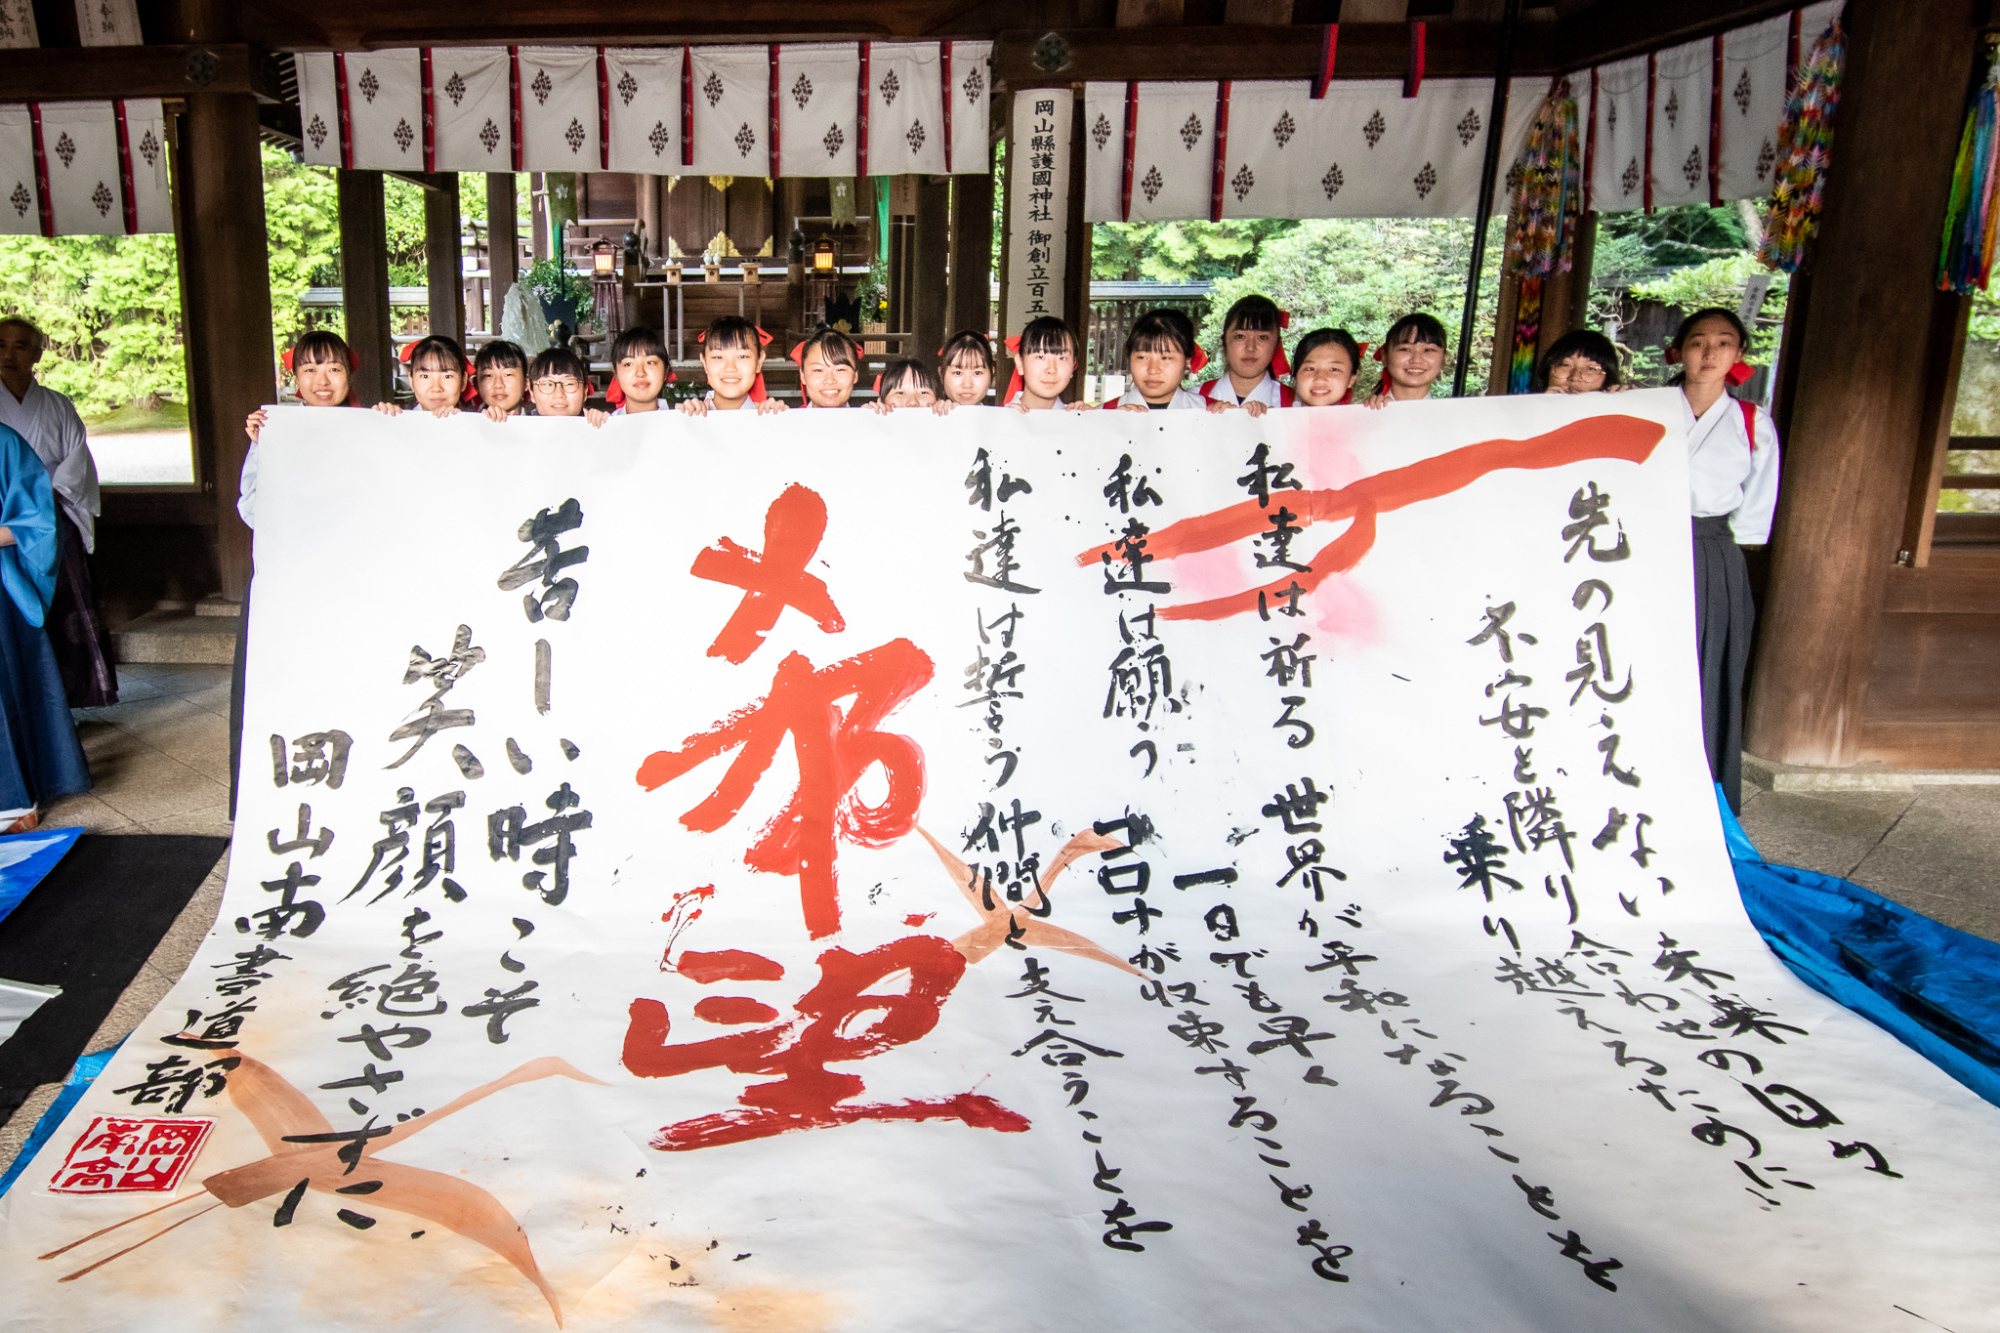 岡山縣護國神社 御創立百五
先の見えない未来の日々
不安と隣り合わせの
乗り越えるために…
私達は祈る 世界が平和になることを
私達は願う 一日でも早く
コロナが収束することを
私達は誓う 仲間と支え合うことを
希望
苦しい時こそ
笑顔を絶やさずに
岡山南書道部